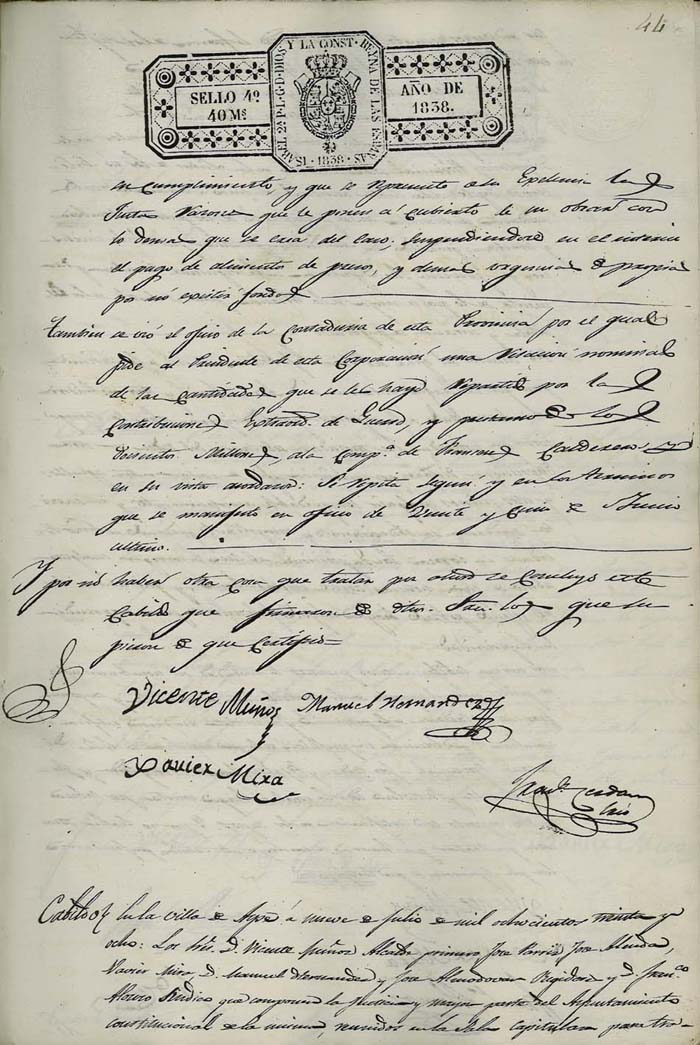 44
SELLO 4º
40 Ms
ISABEL 2ª P. L. G. D. DIOS Y LA CONST. REYNA DE LAS ESPAÑAS · 1838 ·
AÑO DE
1838.
en cumplimiento, y que se represente a la Exclencia la
Junta que la ponen a cubierto de un obrar con
lo demas que se crea del caso, suspendiendose en el interin
el pago de alimentos de presos, y demas urgencias de propios
por nó existir fondos
Tambien se vió el oficio de la Contaduria de esta Provincia por el qual
pide al Presidente de esta Corporacion una relacion nominal
de las cantidades que se les haya repartido por la
Contribucion Extraord. de Guerra, y prestamo de los
doscientos Millones, a la Compª. de Francisco Calderon y
en su vista acordaron: Se repita segun y en los terminos
que se manifestó en oficio de Veinte y Cinco de Junio
ultimo.
Y por nó haber otra cosa que tratar por ahora se concluyó este
Cabildo que firmaron de dhos. Sres. los que su
pieron de que Certifico=
Vicente Muños Manuel Hernandez
Xavier Mira
Franco. Cerdan
Srio
Cabildo En la villa de Aspe á nueve de Julio de mil ochocientos treinta y
ocho: Los Sres. D. Vicente Muños Alcalde primero Jose Jose Almodar,
Xavier Mira, D. Manuel Hernandez y Jose Almodovar Regidores y D. Franco
Alvaro Sindico que componen la Justicia y mayor parte del Ayuntamiento
constitucional de la misma, reunidos en la Sala Capitular para tra-